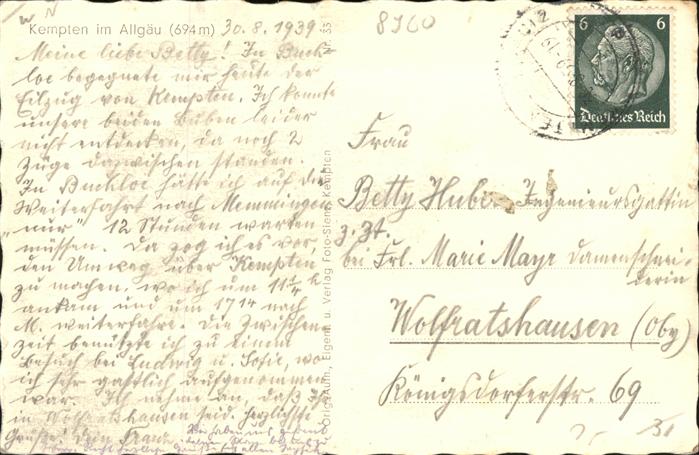 Kempten im Allgäu (694 m) 30.8.1939
Meine liebe Betty! In Buch-
loe begegnete mir heute der
Eilzug von Kempten. Ich konnte
unsere beiden Buben leider
nicht entdecken, da noch 2
Züge dazwischen standen.
In Buchloe hätte ich auf die
Weiterfahrt nach Memmingen
„nur" 12 Stunden warten
müssen. Da zog ich es vor,
den Umweg über Kempten
zu machen, wo ich um 11 ¼ h
ankam und um 17 14 nach
M. weiterfahre. Die Zwischen-
zeit benützte ich zu einem
Besuch bei Ludwig u. Sofie, wo
ich sehr gastlich aufgenommen
war. Ich nehme an, daß Ihr
in Wolfratshausen seid. Herzliche
Grüße! Dein Franz
Nr. 33
Orig.-Aufn., Eigent. u. Verlag Foto-Siene, Kempten
8960
6 6
Deutsches Reich
Frau
Betty Huber Ingenieursgattin
z. Zt.
bei Frl. Marie Mayr Damenschnei-
derin
Wolfratshausen (Oby)
Königsdorferstr. 69